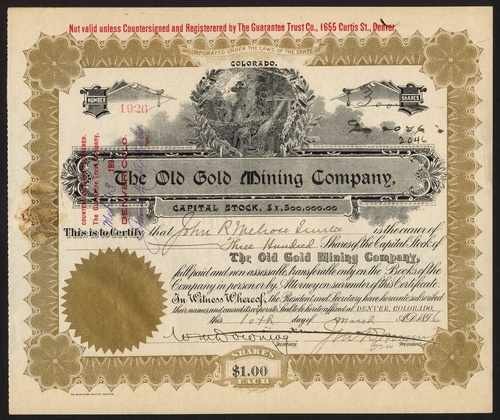 Not valid unless Countersigned and Registerered by The Guarantee Trust Co., 1655 Curtis St., Denver.
INCORPORATED UNDER THE LAWS OF THE STATE
COLORADO.
NUMBER
1926
SHARES
300
2046
COUNTERSIGNED AND REGISTERED.
The Guarantee Trust Company,
DENVER, COLO.
The Old Gold Mining Company,
CAPITAL STOCK, $1,500,000.00
This is to Certify that John R
is the owner of
Three Hundred Shares of the Capital Stock of
The Old Gold Mining Company,
full paid and non assessable, transferable only on the Books of the
Company in person or by Attorney on surrender of this Certificate.
In Witness Whereof, the President and Secretary have hereunto subscribed
their names and caused its corporate Seal to be hereto affixed at DENVER, COLORADO,
this 10th day of March A.D. 1896
SECRETARY
PRESIDENT
SHARES
$1.00
EACH